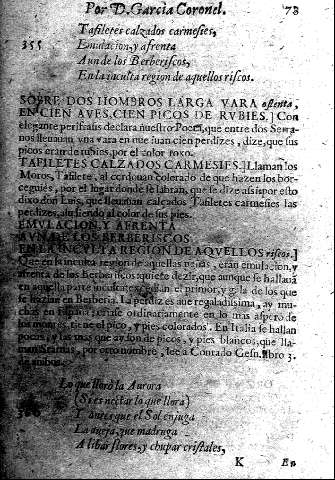 Por D. Garcia Coronel. 73
Tafiletes calzados carmesies,
355 Emulacion, y afrenta
Aun de los Berberiscos,
En la inculta region de aquellos riscos.
SOBRE DOS HOMBROS LARGA VARA ostenta,
EN CIEN AVES, CIEN PICOS DE RVBIES.] Con
elegante perifrasis declara nuestro Poeta, que entre dos Serra-
nos lleuauan vna vara en que iuan cien perdizes, dize, que sus
picos eran de rubies, por el color roxo.
TAFILETES CALZADOS CARMESIES.] Llaman los
Moros, Tafilete, al cordouan colorado de que hazen los bor-
ceguies, por el lugar donde se labran, que se dize assi: por esto
dixo don Luis, que lleuauan calçados Tafiletes carmesies las
perdizes, aludiendo al color de sus pies.
EMVLACION, Y AFRENTA
AVN DE LOS BERBERISCOS
EN LA INCVLTA REGION DE AQVELLOS riscos.]
Que en la inculta region de aquellas peñas, eran emulacion, y
afrenta de los Berberiscos quiere dezir, que aunque se hallauã
en aquella parte inculta excedian el primor, y gala de los que
se hazian en Berberia. La perdiz es aue regaladissima, ay mu-
chas en España; criase ordinariamente en lo mas aspero de
los montes, tiene el pico, y pies colorados. En Italia se hallan
pocas, y las mas que ay son de picos, y pies blancos, que lla-
man Starnas, por otro nombre, lee a Conrado Gesn. libro 3.
de auibus.
Lo que lloró la Aurora
(Si es nectar lo que llora)
Y antes que el Sol enjuga
La aueja, que madruga
A libar flores, y chupar cristales,
K En